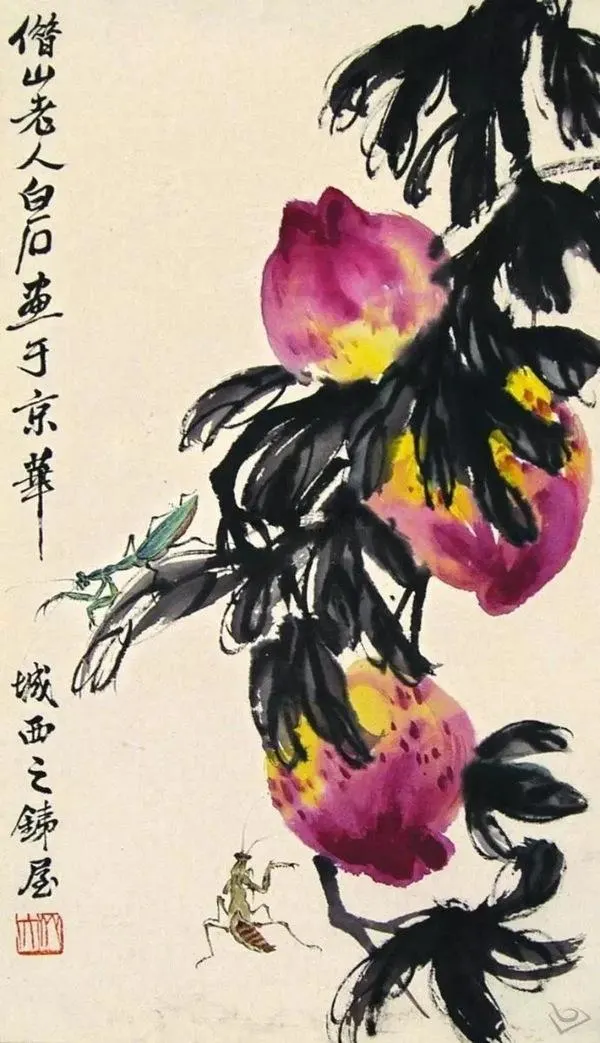 借山老人白石畫于京華城西之銕屋